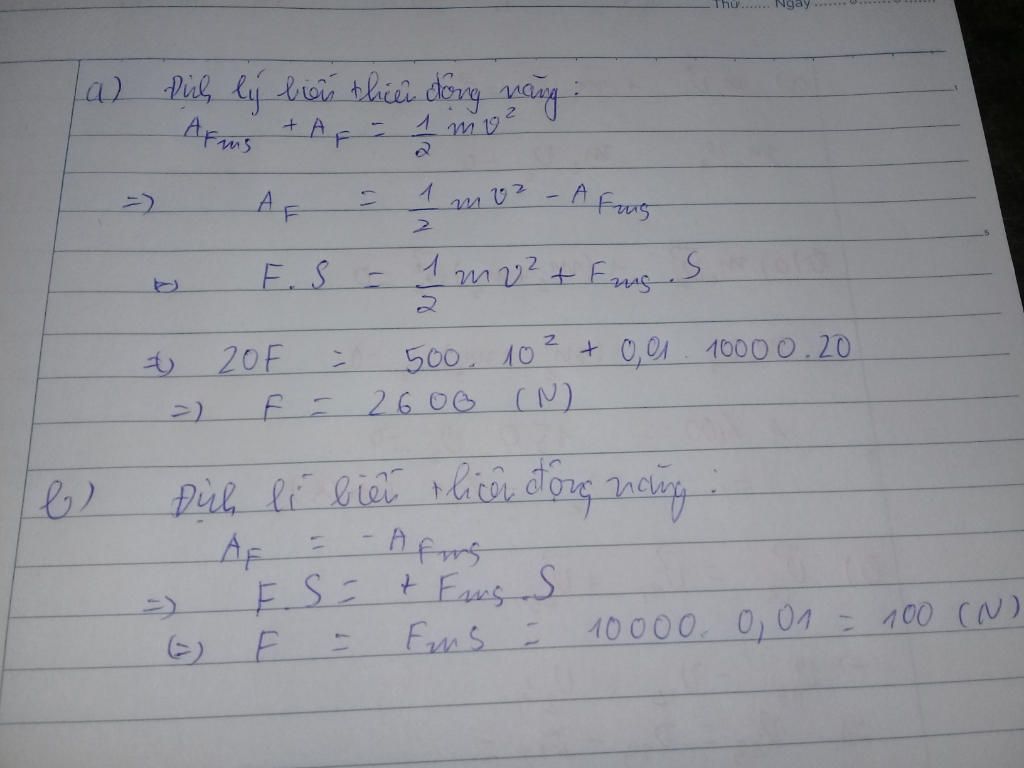 Thứ....... Ngày .......
a) Định lý biến thiên động năng:
A_Fms + A_F = 1/2 mv²
=> A_F = 1/2 mv² - A_Fms
<=> F.S = 1/2 mv² + Fms.S
<=> 20F = 500.10² + 0,01.10000.20
=> F = 2600 (N)
b) Định lí biến thiên động năng:
A_F = -A_Fms
=> F.S = + Fms.S
(=) F = Fms = 10000.0,01 = 100 (N)